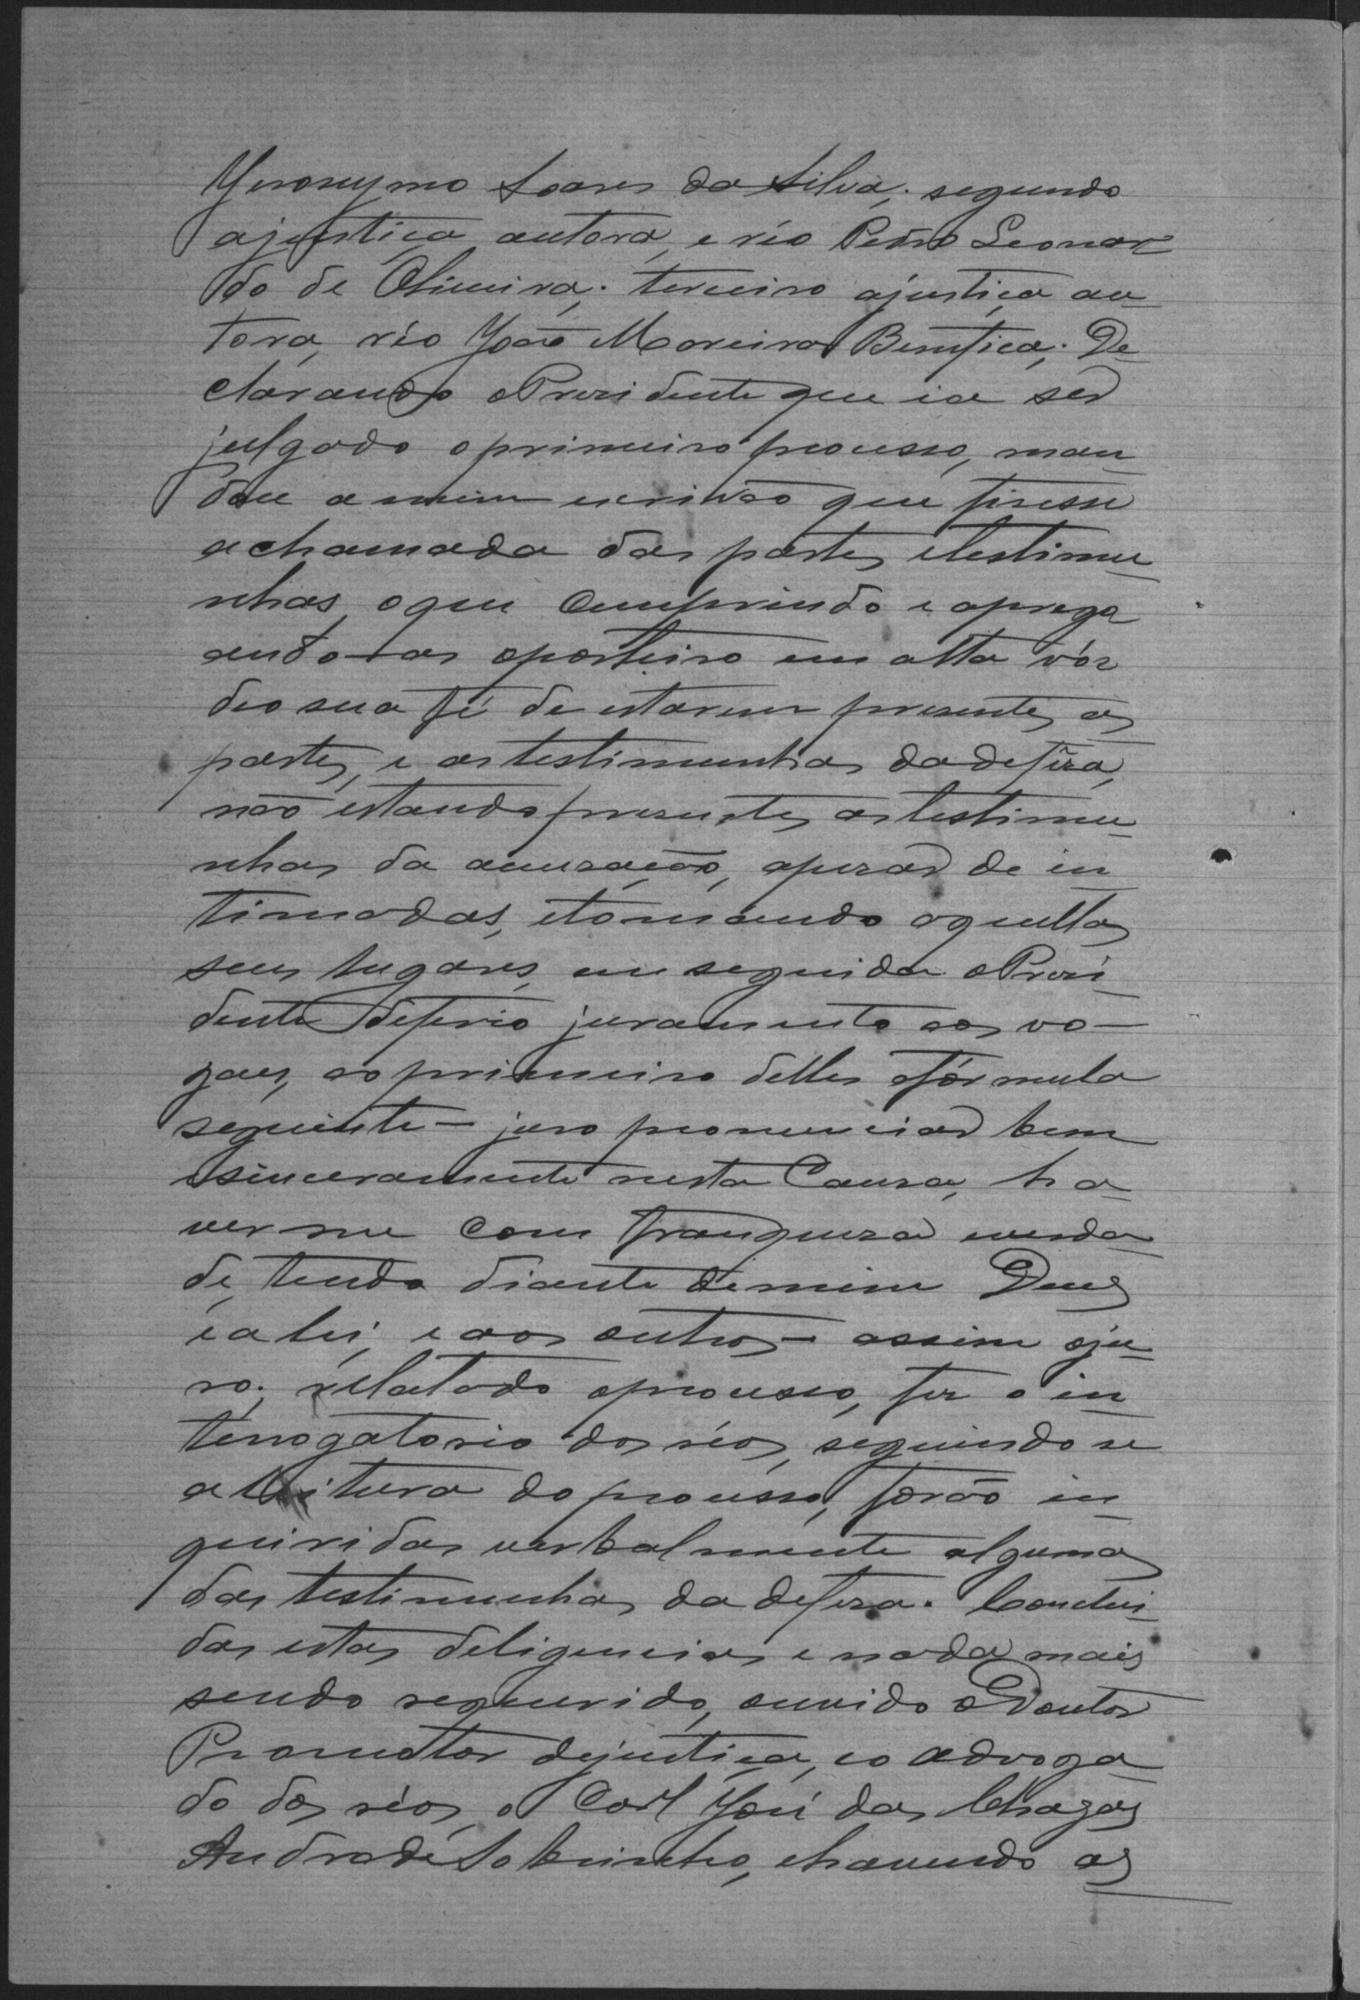 Yeronymo Soares da Silva; segundo
ajustiça autora, e réo Pedro Leonar
do de Oliveira; terceiro ajustiça au
tora, réo João Moreira Benfica; De
clarando o Prezidente que ia ser
julgado o primeiro processo, man
dou a mim escrivão que fizesse
a chamada das partes etestimu
nhas, o que cumprindo e aprego
ando-as oporteiro em alta vóz
deo sua fé de estarem presentes as
partes, e as testimunhas dadefeza,
não estando presentes as testimu
nhas da accuzação, apezar de in
timadas, etomando aquellas
seus lugares, em seguida o Prezi
dente deferio juramento aos vo-
gaes, ao primeiro delles a fórmula
seguinte - juro pronunciar bem
e sinceramente nesta Causa, ha
ver me com franqueza everda
de, tendo diante de mim Deus
e a lei, e aos outros - assim oju
ro; relatado oprocesso, fez o in
terrogatorio dos réos, seguindo se
a leitura do processo, forão in
quiridas verbalmente algumas
das testimunhas da defeza. Conclui
das estas deligencias e nada mais
sendo requerido, ouvido o Doutor
Promotor dejustiça, eo advoga
do dos réos, o Corl José das Chagas
Andrade Sobrinho, ehavendo as